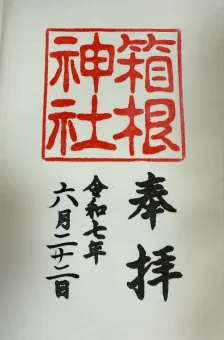 箱根
神社
奉拝
令和七年
六月二十二日